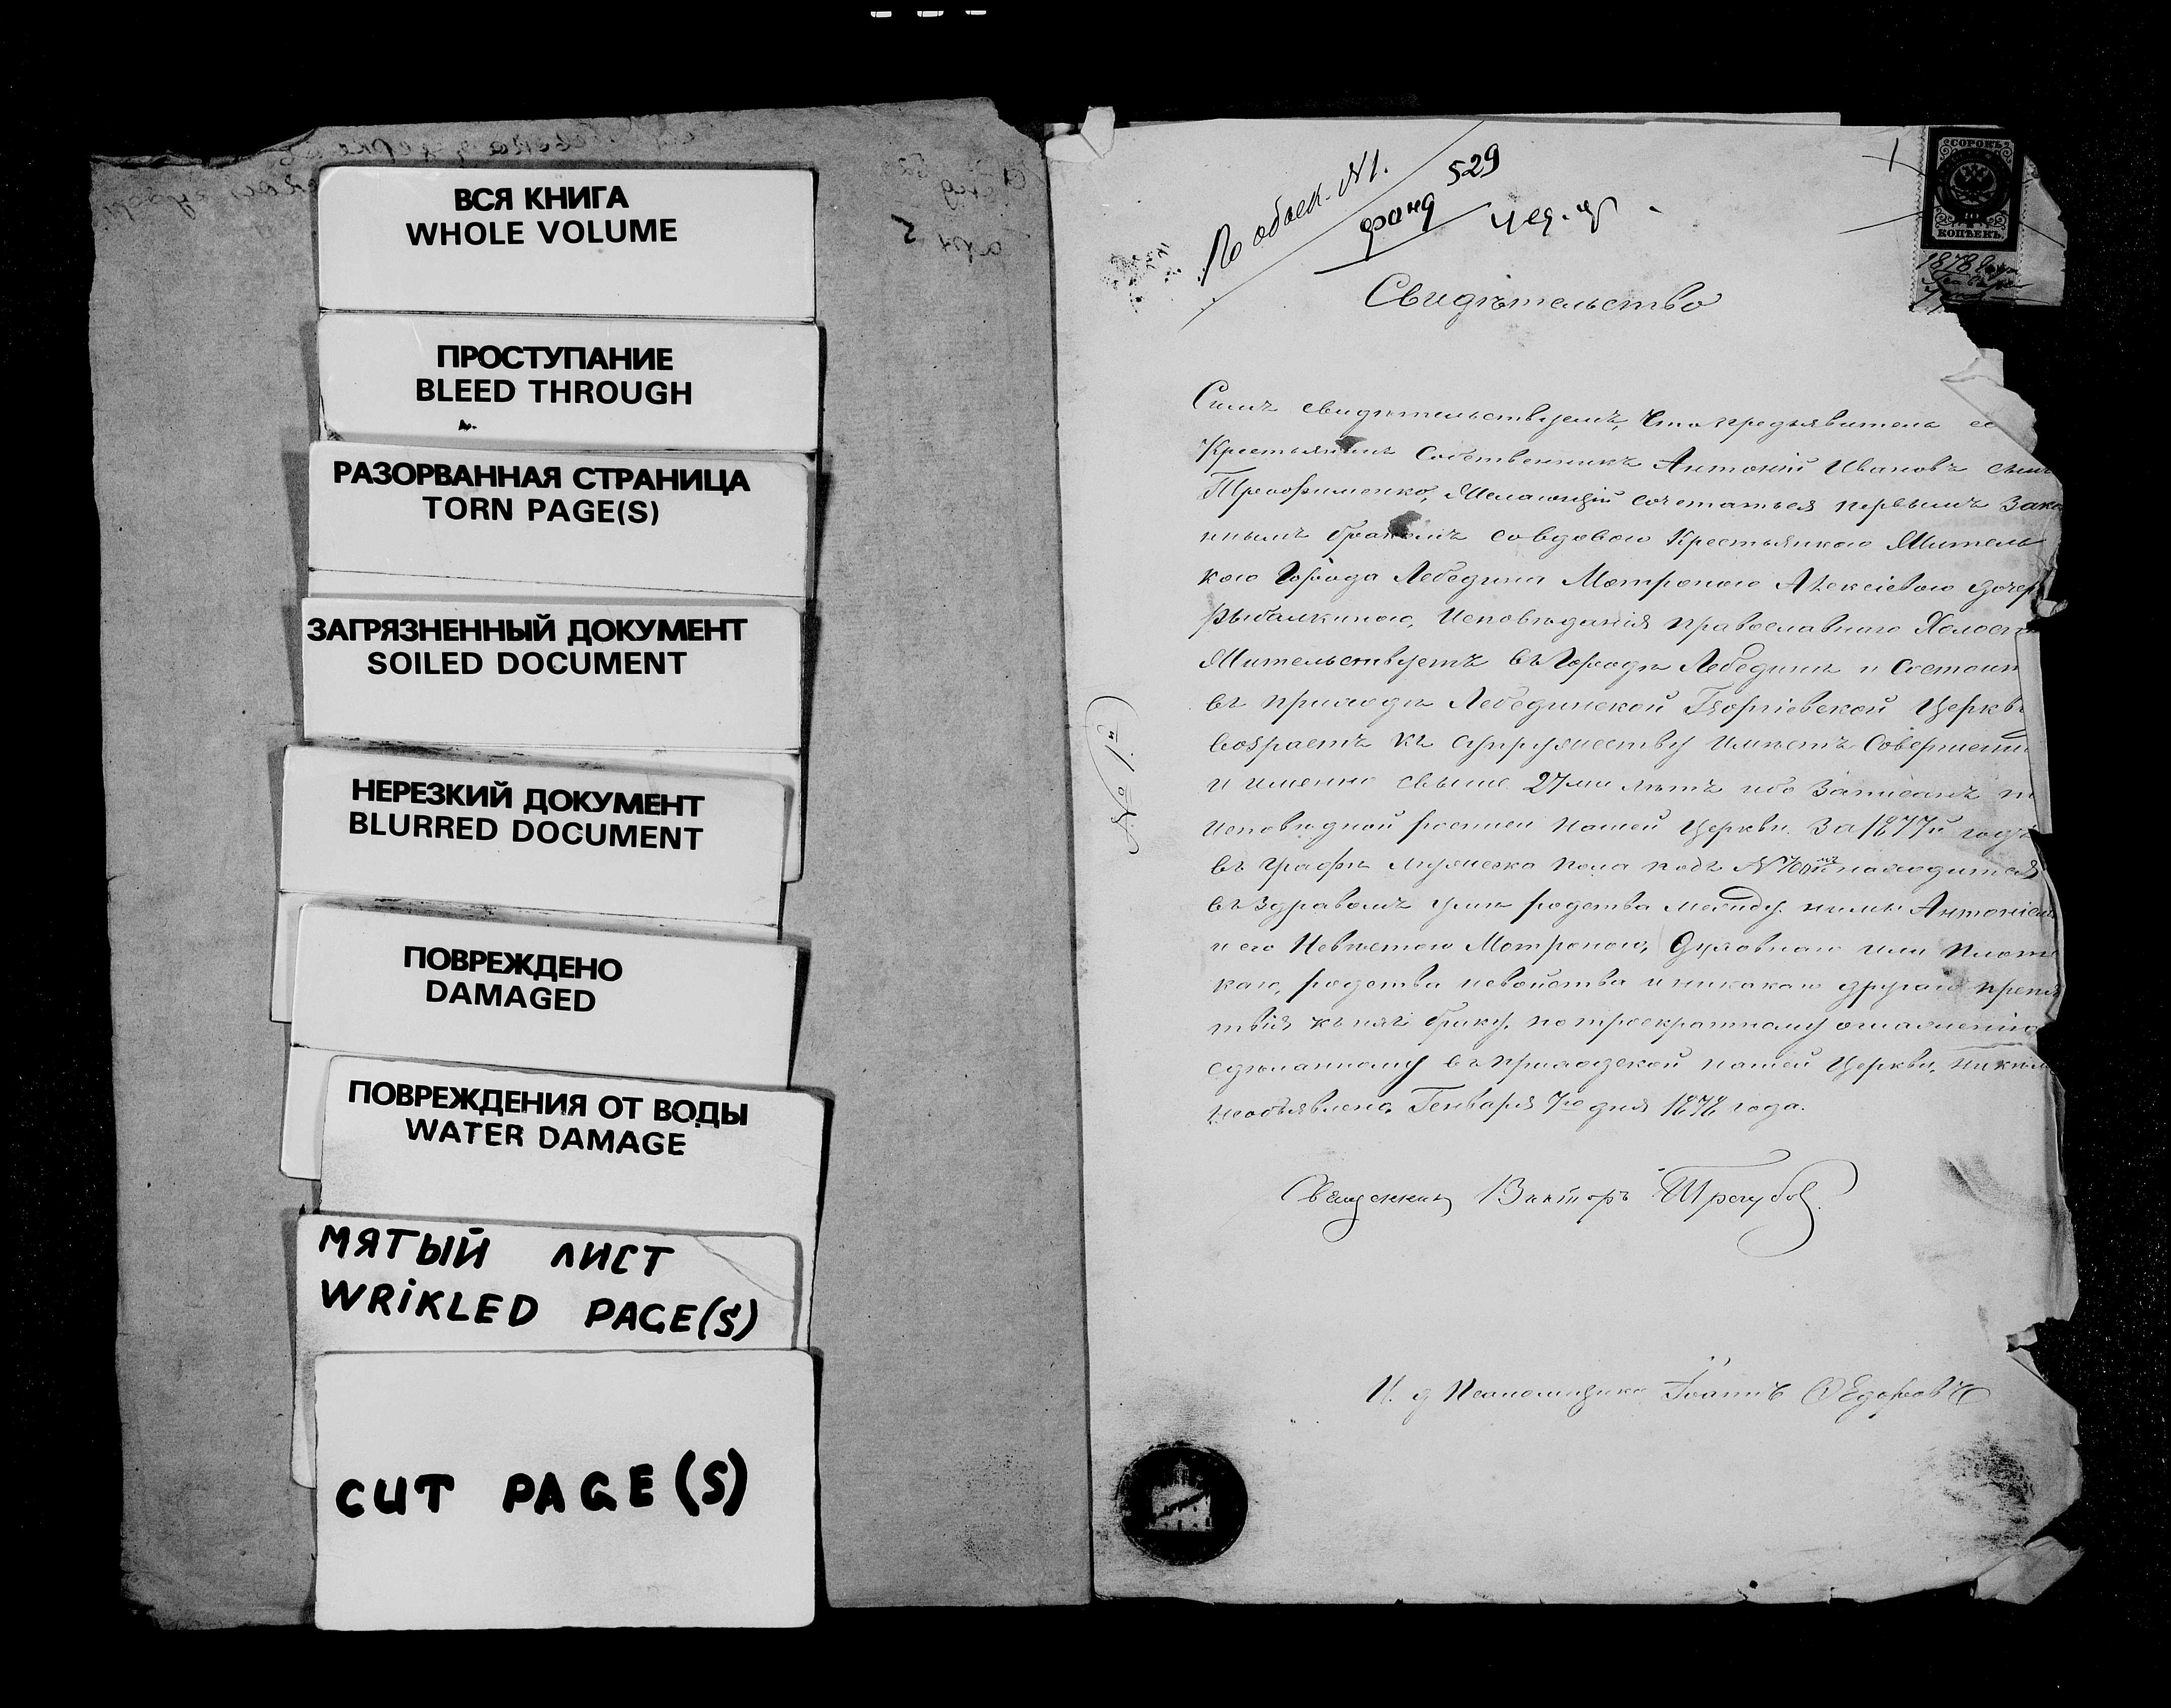 ВСЯ КНИГА
WHOLE VOLUME
ПРОСТУПАНИЕ
BLEED THROUGH
РАЗОРВАННАЯ СТРАНИЦА
TORN PAGE(S)
ЗАГРЯЗНЕННЫЙ ДОКУМЕНТ
SOILED DOCUMENT
НЕРЕЗКИЙ ДОКУМЕНТ
BLURRED DOCUMENT
ПОВРЕЖДЕНО
DAMAGED
ПОВРЕЖДЕНИЯ ОТ ВОДЫ
WATER DAMAGE
МЯТЫЙ ЛИСТ
WRiKLED PAGE(S)
CUT PAGE(S)
По обыск. №1.
фонд 529
СОРОКЪ
КОПѢЕКЪ
1878
Свидѣтельство
Симъ свидѣтельствуемъ, что предъявитель се
Крестьянинъ Собственникъ Антоній Ивановъ сынъ
Трофименко, Желающій сочетаться первымъ Зако
ннымъ бракомъ совдовою Крестьянкою Житель
кою Города Лебедина Матроною Алексіевою дочер
Рыбалкиною, Исповѣданія православнаго Холост
Жительствуетъ въ Городѣ Лебединѣ и Состоит
въ приходѣ Лебединской Георгіевской Церкви
Возрастъ къ супружеству имѣетъ Совершенн
и именно свыше 27ми лѣтъ ибо Записанъ
исповѣдной росписи нашей Церкви за 1877й годъ
въ графѣ мужеска пола подъ № находится
въ здравомъ умѣ родства между ними Антоніем
и его Невѣстою Матроною, Духовнаго или Плотс
каго, родства и никакого другаго препя
твія къ браку, по троекратному оглашенію
сдѣланному въ приходской нашей Церкви, никѣм
необъявлено, Генваря 7го дня 1878 года.
Священникъ Викторъ Трегубовъ
И. д Псаломщика Іоаннъ Ѳедоровъ